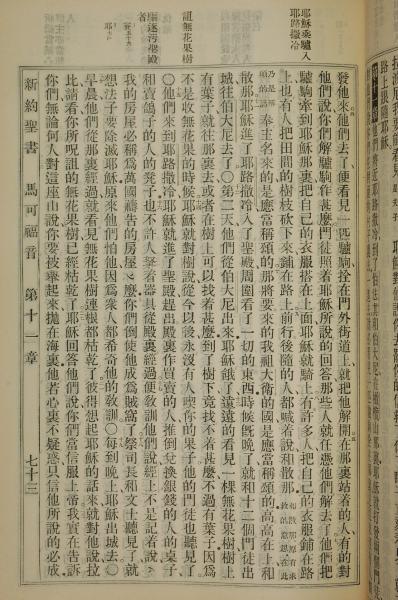 耶穌乘驢入
耶路撒冷
詛無花果樹
驅逐污褻殿
者
新約聖書 馬可福音 第十一章 七十三
發他來他們去了便看見一匹驢駒拴在門外街道上就把他解開在那裏站着的人有的對
他們說你們解驢駒作甚麼門徒照着耶穌所說的回答那些人就任憑他們解去了他們把
驢駒牽到耶穌那裏把自己的衣服搭在上面耶穌就騎上有許多人把自己的衣服鋪在路
上也有人把田間的樹枝砍下來鋪在路上前行後隨的人都喊着說和散那
奉主名來的是應當稱頌的那將要來的我祖大衛的國是應當稱頌的高高在上和
散那耶穌進了耶路撒冷入了聖殿周圍看了一切的東西時候旣晚了就和十二個門徒出
城往伯大尼去了〇第二天他們從伯大尼出來耶穌餓了遠遠的看見一棵無花果樹樹上
有葉子就往那裏去或者在樹上可以找着甚麼到了樹下竟找不着甚麼不過有葉子因爲
不是收無花果的時候耶穌就對樹說從今以後永沒有人喫你的果子他的門徒也聽見了
〇他們來到耶路撒冷耶穌就進了聖殿趕出殿裏作買賣的人推倒兌換銀錢的人的桌子
和賣鴿子的人的凳子也不許人拏着器具從殿裏經過便敎訓他們說經上不是記着說
我的房屋必稱爲萬國禱告的房屋麼你們都倒使他成爲賊窩了祭司長和文士聽見了就
想法子要除滅耶穌原來他們怕他因爲衆人都希奇他的敎訓〇每到晚上耶穌出城去〇
早晨他們從那裏經過就看見無花果樹連根都枯乾了彼得想起耶穌的話來就對他說拉
比請看你所咒詛的無花果樹已經枯乾了耶穌回答他們說你們當信服上帝我實在告訴
你們無論何人對這座山說你要被舉起來拋在海裏他若心裏不疑惑只信他所說的必成